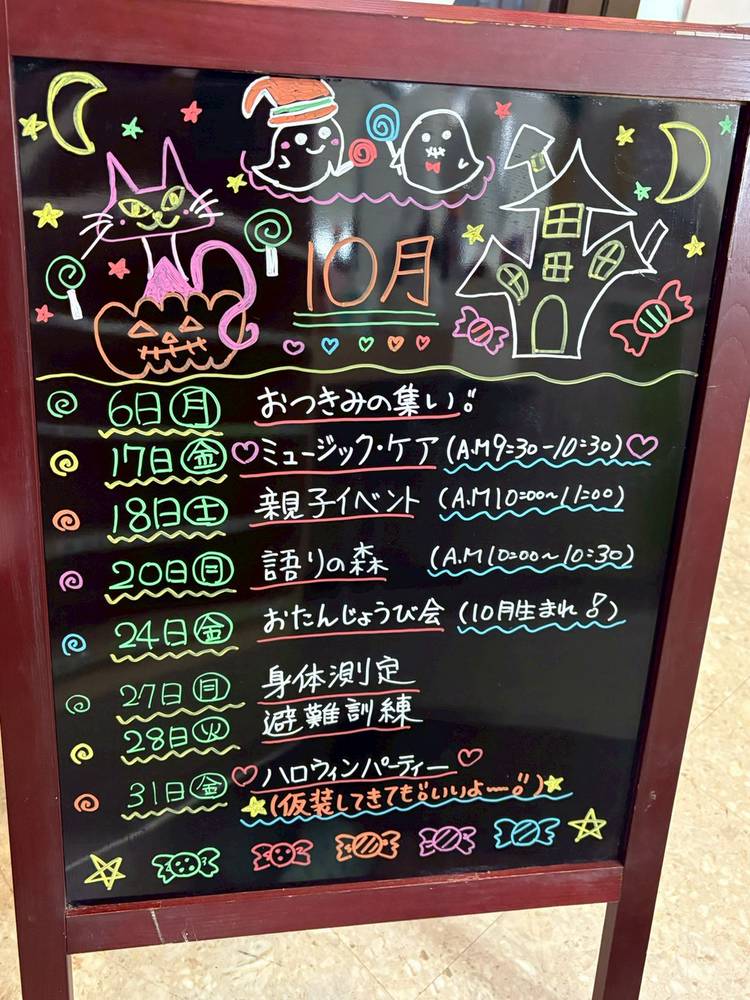 10月
6日(月) おつきみの集い!
17日(金) ミュージック・ケア (A.M9:30-10:30)
18日(土) 親子イベント (A.M10:00~11:00)
20日(月) 語りの森 (A.M10:00~10:30)
24日(金) おたんじょうび会 (10月生まれ!)
27日(月) 身体測定
28日(火) 避難訓練
31日(金) ハロウィンパーティー
(仮装してきても!いいよー!)